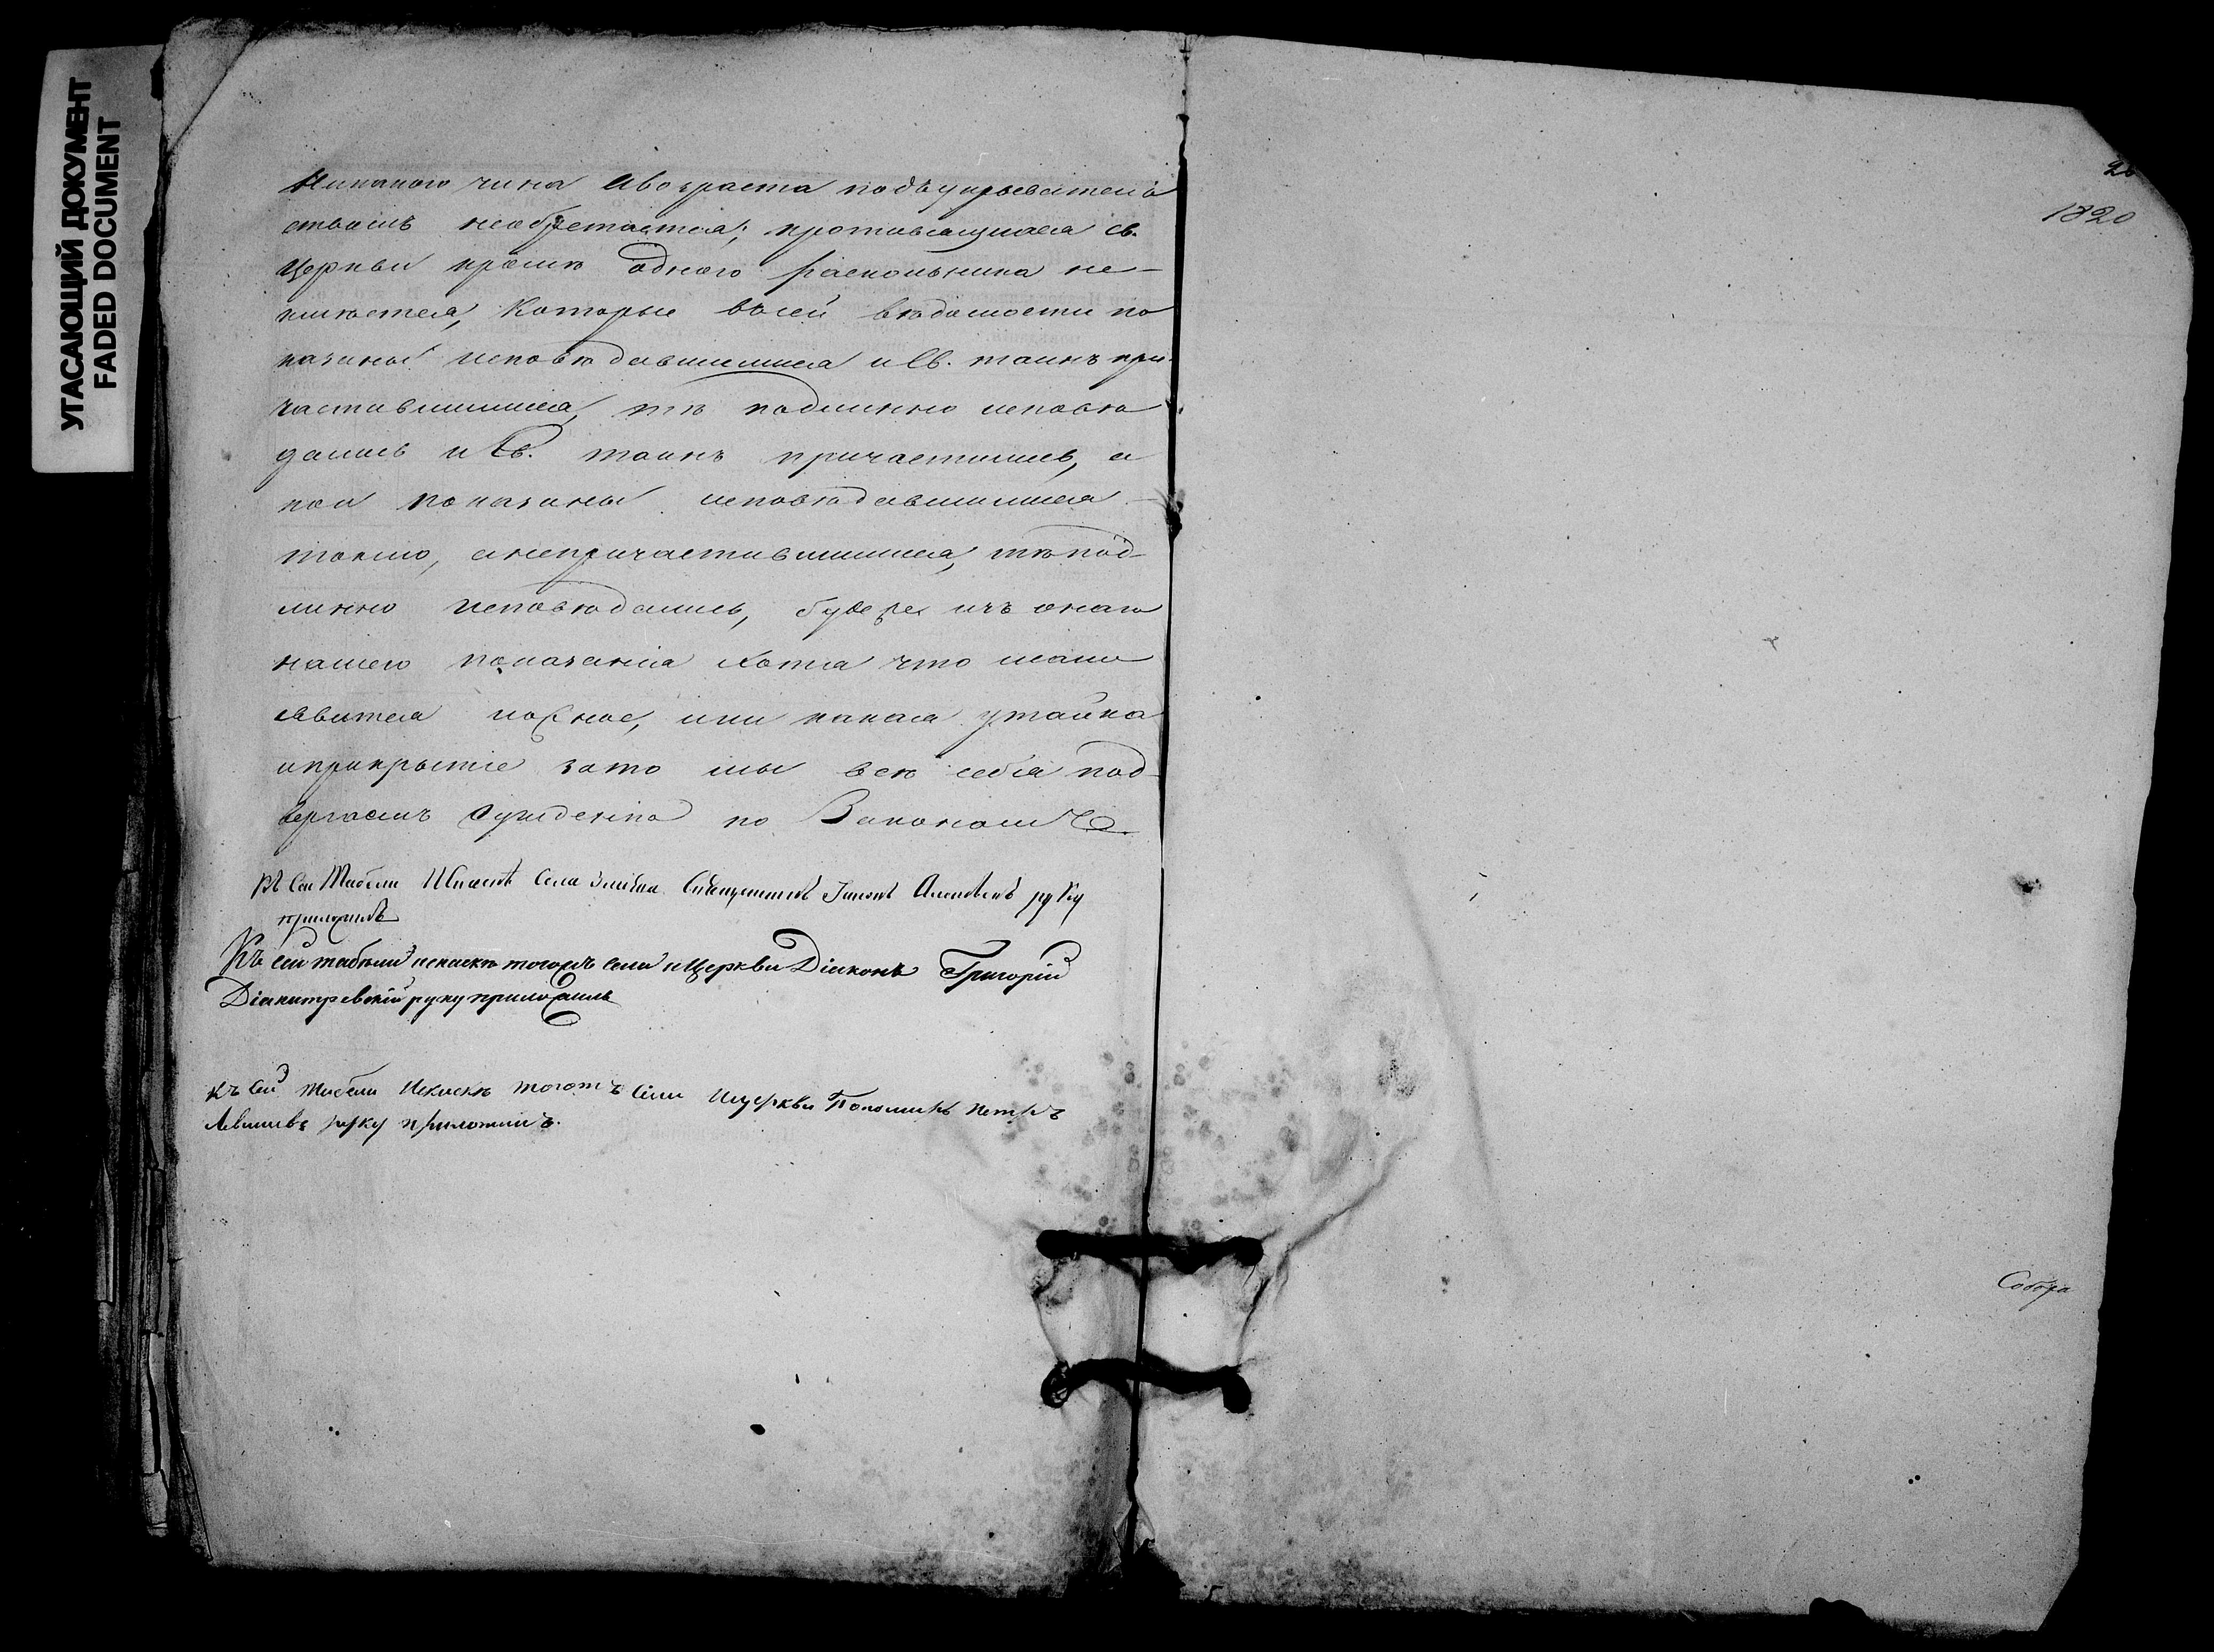 УГАСАЮЩИЙ ДОКУМЕНТ
FADED DOCUMENT
Никакого чина и возраста подъ укрывательствомъ
необрѣтается; противящихся св.
Церкви кромѣ одного раскольника не-
имѣется, которые въ сей вѣдомости по
казаны исповѣдавшимися и Св. таинъ при-
частившимися, тѣ подлинно исповѣ
дались и Св. таинъ причастились, а
кои показаны исповѣдавшимися
токмо, а непричастившимися, тѣ под-
линно исповѣдались, буде же изъ онаго
нашего показанія хотя что мало
явится ложное, или какая утайка
и прикрытіе за то мы всѣ себя под-
вергаемъ сужденію по Законамъ.
Къ сей Табели и Села Священникъ руку
приложилъ
Къ сей табели и тогожъ села и Церкви Діаконъ Григорій
руку приложилъ
Къ сей табели и тогожъ села и церкви Пономарь Петръ
руку приложилъ.
1820
Собора